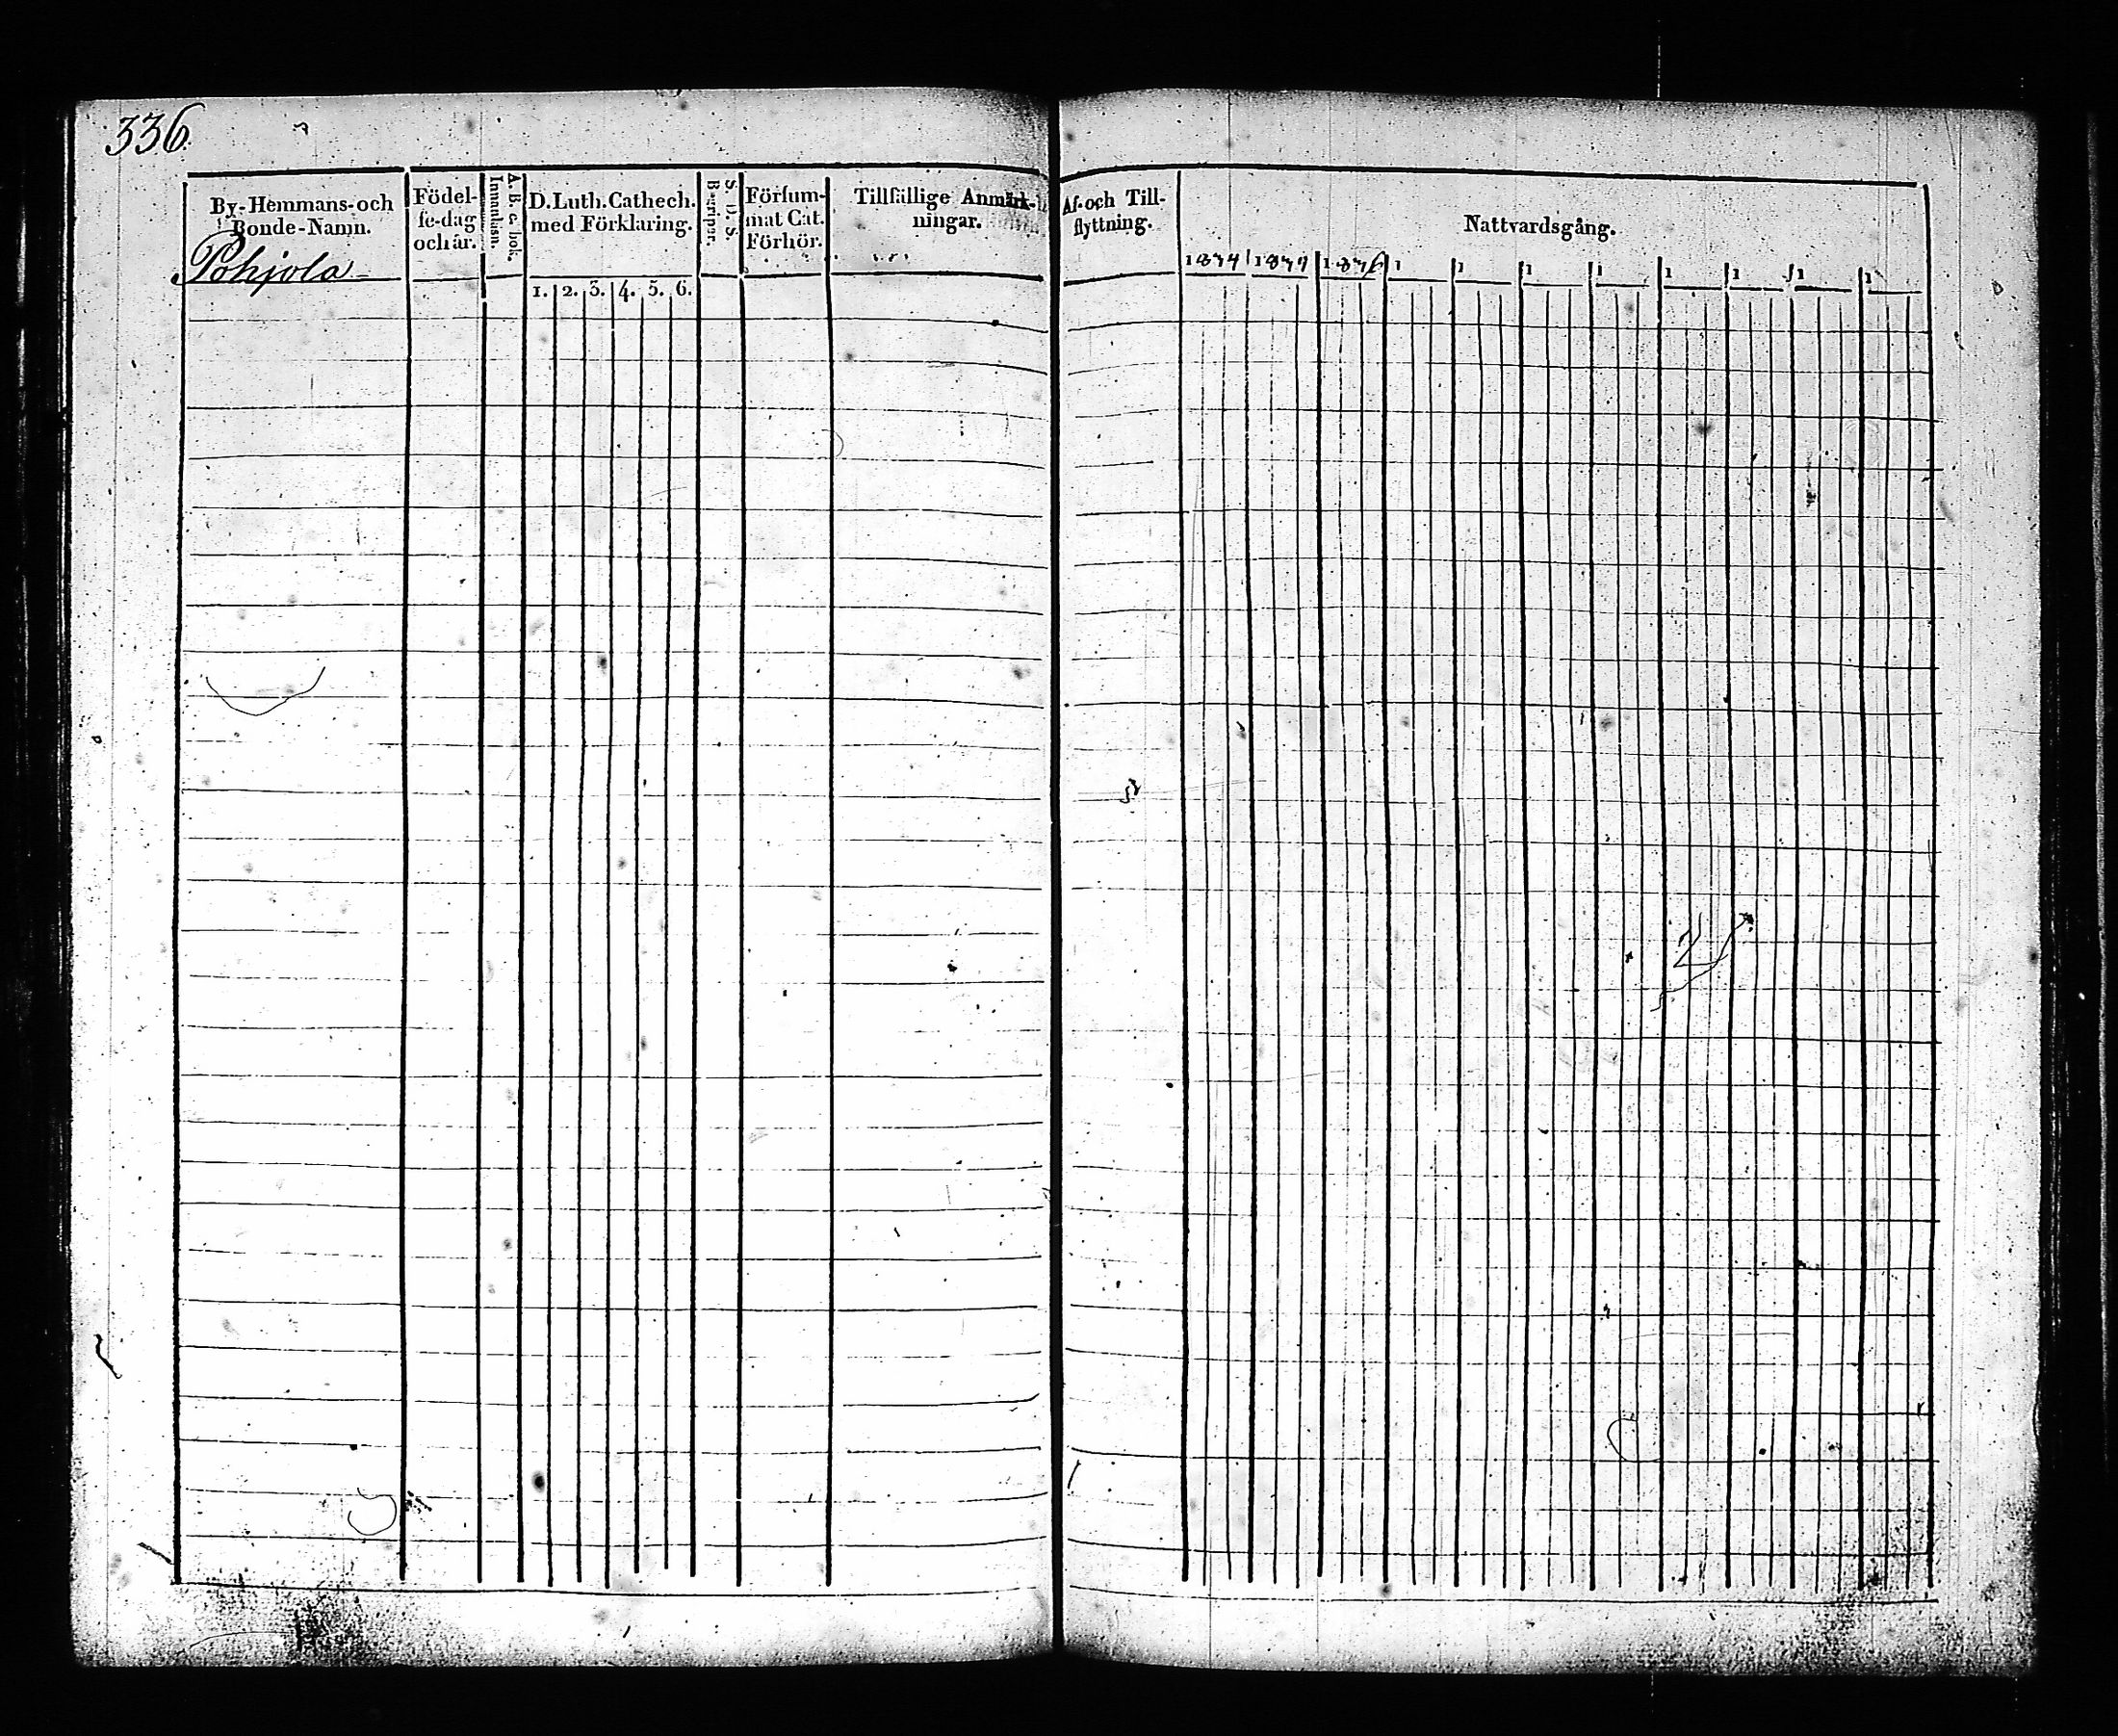 336.
By-Hemmans-och Bonde-Namn.
Födel-se-dag och år.
A. B. c. bok. Innanläsn.
D. Luth. Cathech. med Förklaring.
S. D. S. Begriper.
Försum-mat Cat. Förhör.
Tillfällige Anmärk-ningar.
Af- och Till-flyttning.
Nattvardsgång.
Pohjola
1. 2. 3. 4. 5. 6.
1 1 1 1 1 1 1 1